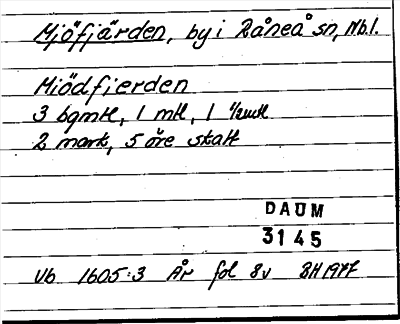 Mjöfjärden, by i Råneå sn, Nb.l.
Miödfierden
3 bgmtl, 1 mtl, 1 1/2mtl
2 mark, 5 öre skatt
DAUM
3145
Vb 1605:3 År fol 8v BH 1977